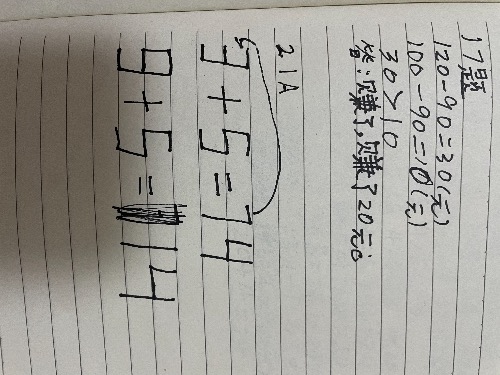 17题
120-90=30(元)
100-90=10(元)
30>10
答:赚了,赚了20元。
21A
3+5=74
9+5=14